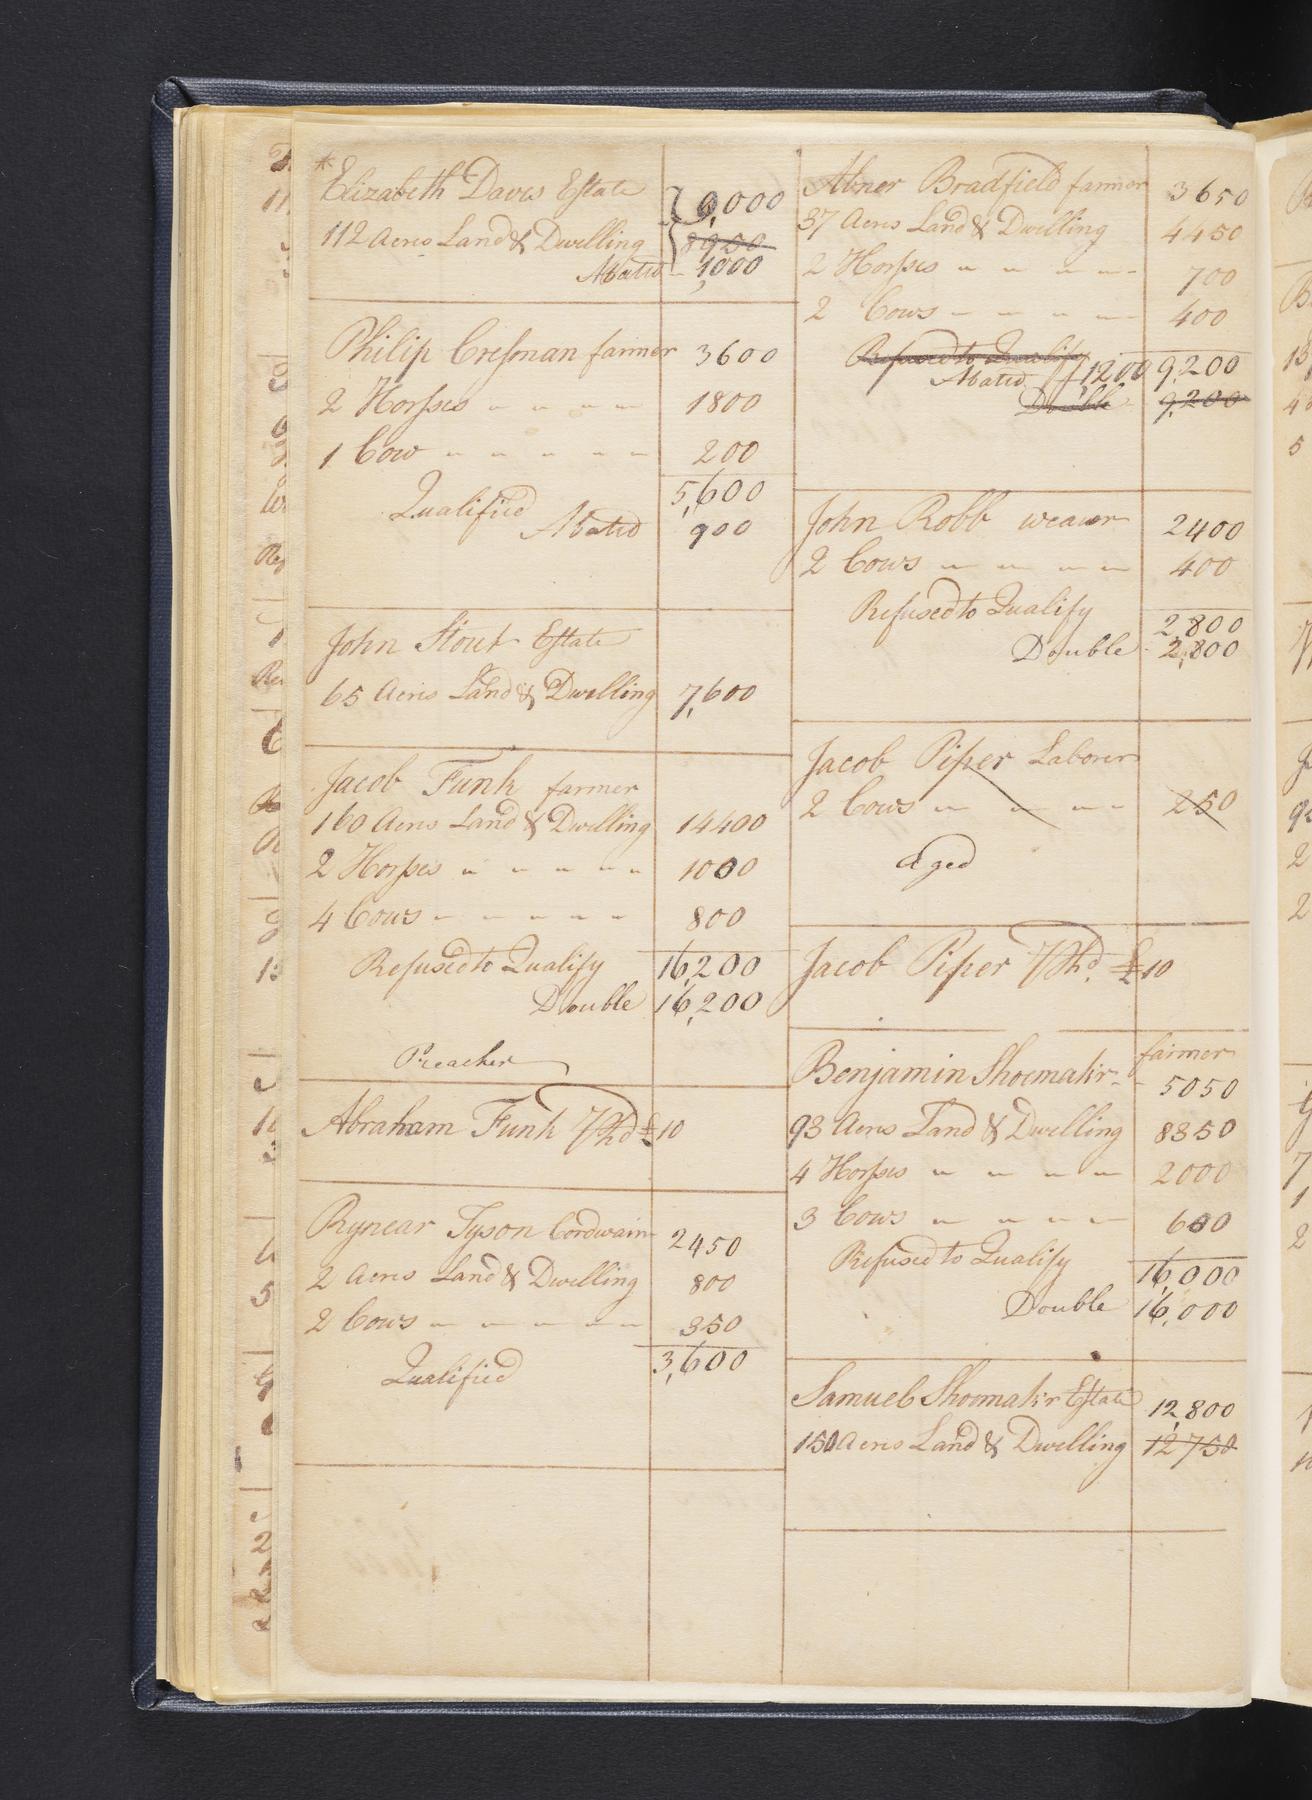 *Elizabeth Daves Estate 9,000
112 Acres Land & Dwelling 8950
Abated 1,000
Philip Cressman farmer 3600
2 Horses 1800
1 Cow 200
5,600
Qualified
Abated 900
John Stout Estate
65 Acres Land & Dwelling 7,600
Jacob Funk farmer
160 Acres Land & Dwelling 14400
2 Horses 1000
4 Cows 800
Refused to Qualify 16,200
Double 16,200
Preacher
Abraham Funk £10
Rynear Tyson Cordwain 2450
2 Acres Land & Dwelling 800
2 Cows 350
Qualified 3,600
Abner Bradfield farmer 3650
37 Acres Land & Dwelling 4450
2 Horses 700
2 Cows 400
Refused to Qualify
Abated 1200 9,200
Double 9,200
John Robb weaver 2400
2 Cows 400
Refused to Qualify 2,800
Double 2,800
Jacob Piper Laborer
2 Cows 250
aged
Jacob Piper £10
Benjamin Shoemaker farmer 5050
93 Acres Land & Dwelling 8350
4 Horses 2000
3 Cows 600
Refused to Qualify 16,000
Double 16,000
Samuel Shoemaker Estate 12,800
150 Acres Land & Dwelling 12750